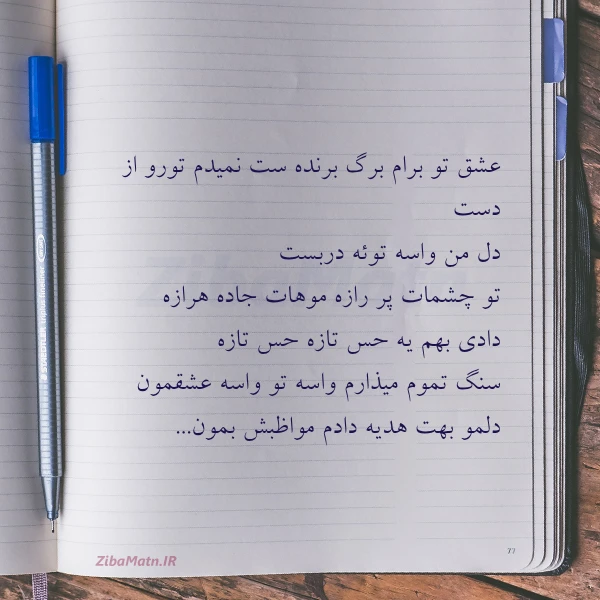 عشق تو برام برگ برنده ست نمیدم تورو از
دست
دل من واسه توئه دربست
تو چشمات پر رازه موهات جاده هرازه
دادی بهم یه حس تازه حس تازه
سنگ تموم میذارم واسه تو واسه عشقمون
دلمو بهت هدیه دادم مواظبش بمون...
ZibaMatn.IR